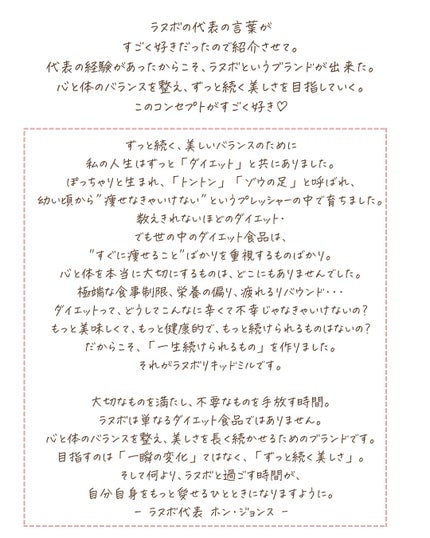 ラヌボの代表の言葉が
すごく好きだったので紹介させて。
代表の経験があったからこそ、ラヌボというブランドが出来た。
心と体のバランスを整え、ずっと続く美しさを目指していく。
このコンセプトがすごく好き♡
ずっと続く、美しいバランスのために
私の人生はずっと「ダイエット」と共にありました。
ぽっちゃりと生まれ、「トントン」「ゾウの足」と呼ばれ、
幼い頃から"痩せなきゃいけない"というプレッシャーの中で育ちました。
数えきれないほどのダイエット・
でも世の中のダイエット食品は、
"すぐに痩せること"ばかりを重視するものばかり。
心と体を本当に大切にするものは、どこにもありませんでした。
極端な食事制限、栄養の偏り、疲れるリバウンド・・・
ダイエットって、どうしてこんなに辛くて不幸じゃなきゃいけないの?
もっと美味しくて、もっと健康的で、もっと続けられるものはないの?
だからこそ、「一生続けられるもの」を作りました。
それがラヌボリキッドミルです。
大切なものを満たし、不要なものを手放す時間。
ラヌボは単なるダイエット食品ではありません。
心と体のバランスを整え、美しさを長く続かせるためのブランドです。
目指すのは「一瞬の変化」ではなく、「ずっと続く美しさ」。
そして何より、ラヌボと過ごす時間が、
自分自身をもっと愛せるひとときになりますように。
− ラヌボ代表 ホン・ジョンス −